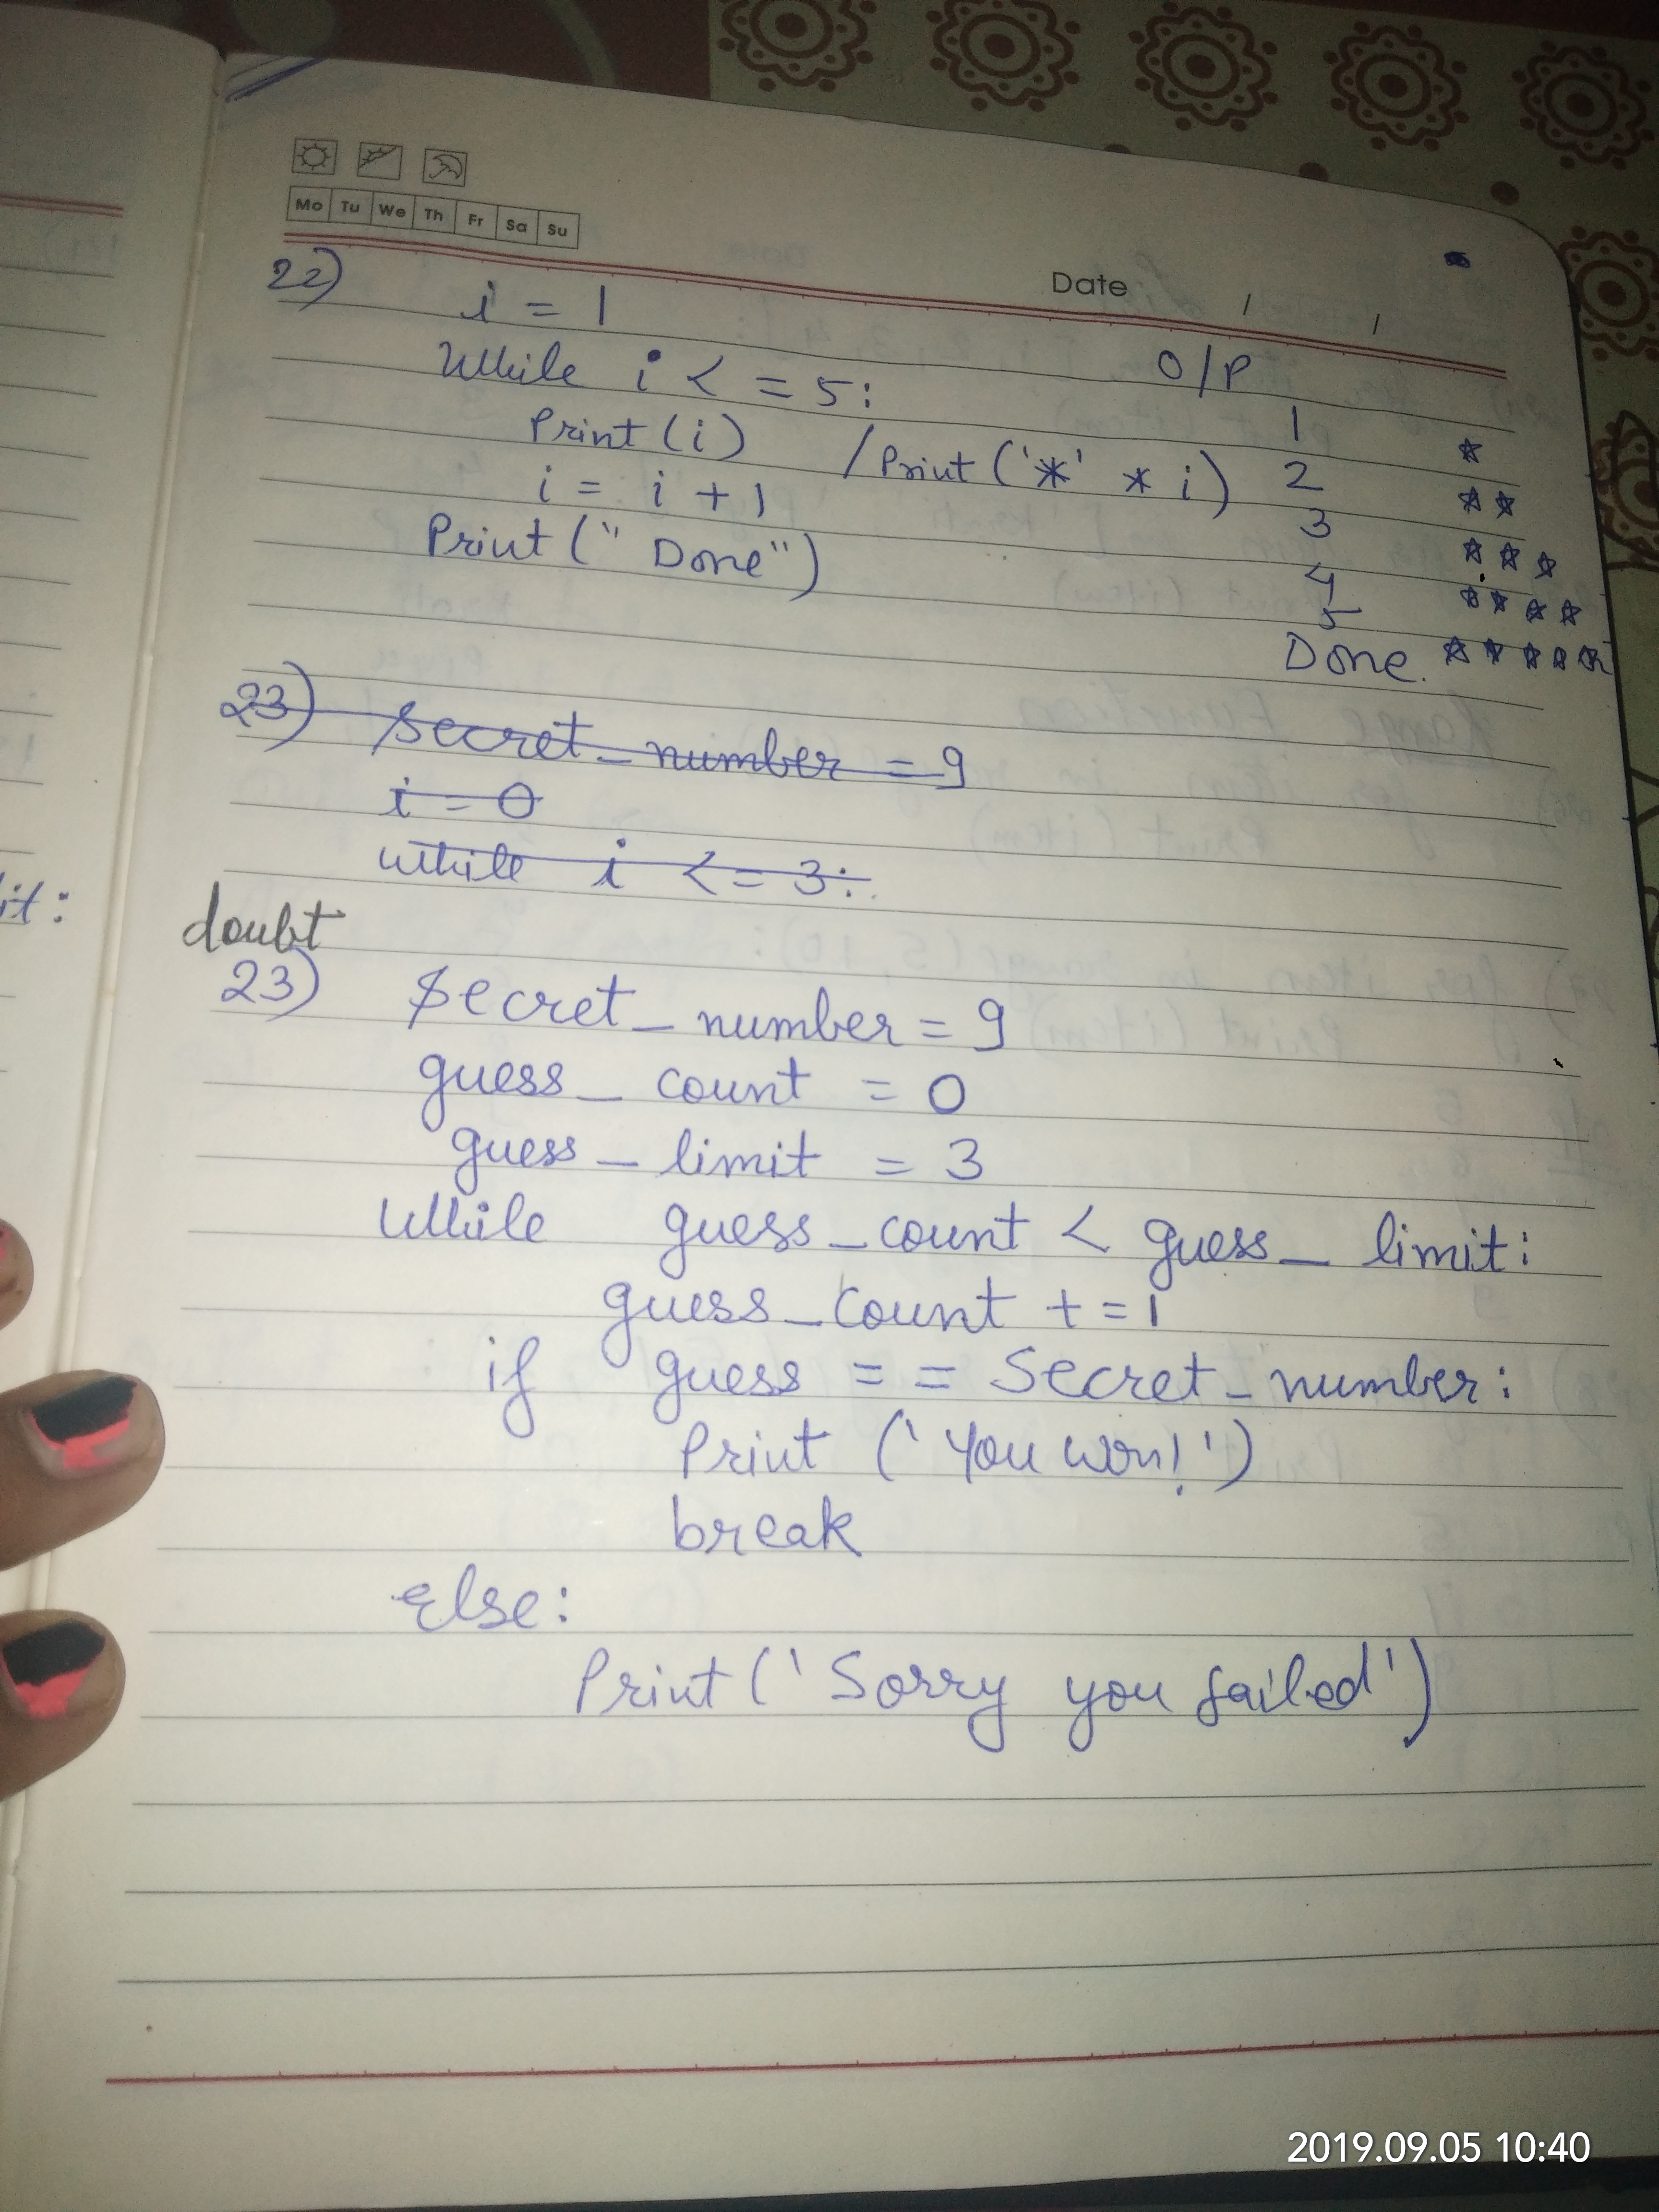 Mo Tu We Th Fr Sa Su
Date / /
22) i = 1
While i < = 5: O/P
Print (i) / Print ('*' * i) 1 *
i = i + 1 2 * *
Print (" Done") 3 * * *
4 * * * *
5
Done. * * * * *
23) Secret_number = 9
i = 0
while i <= 3:
it:
doubt
23) Secret_number = 9
guess_count = 0
guess_limit = 3
While guess_count < guess_limit:
guess_count += 1
if guess == Secret_number:
Print ('You won!')
break
Else:
Print ('Sorry you failed')
2019.09.05 10:40